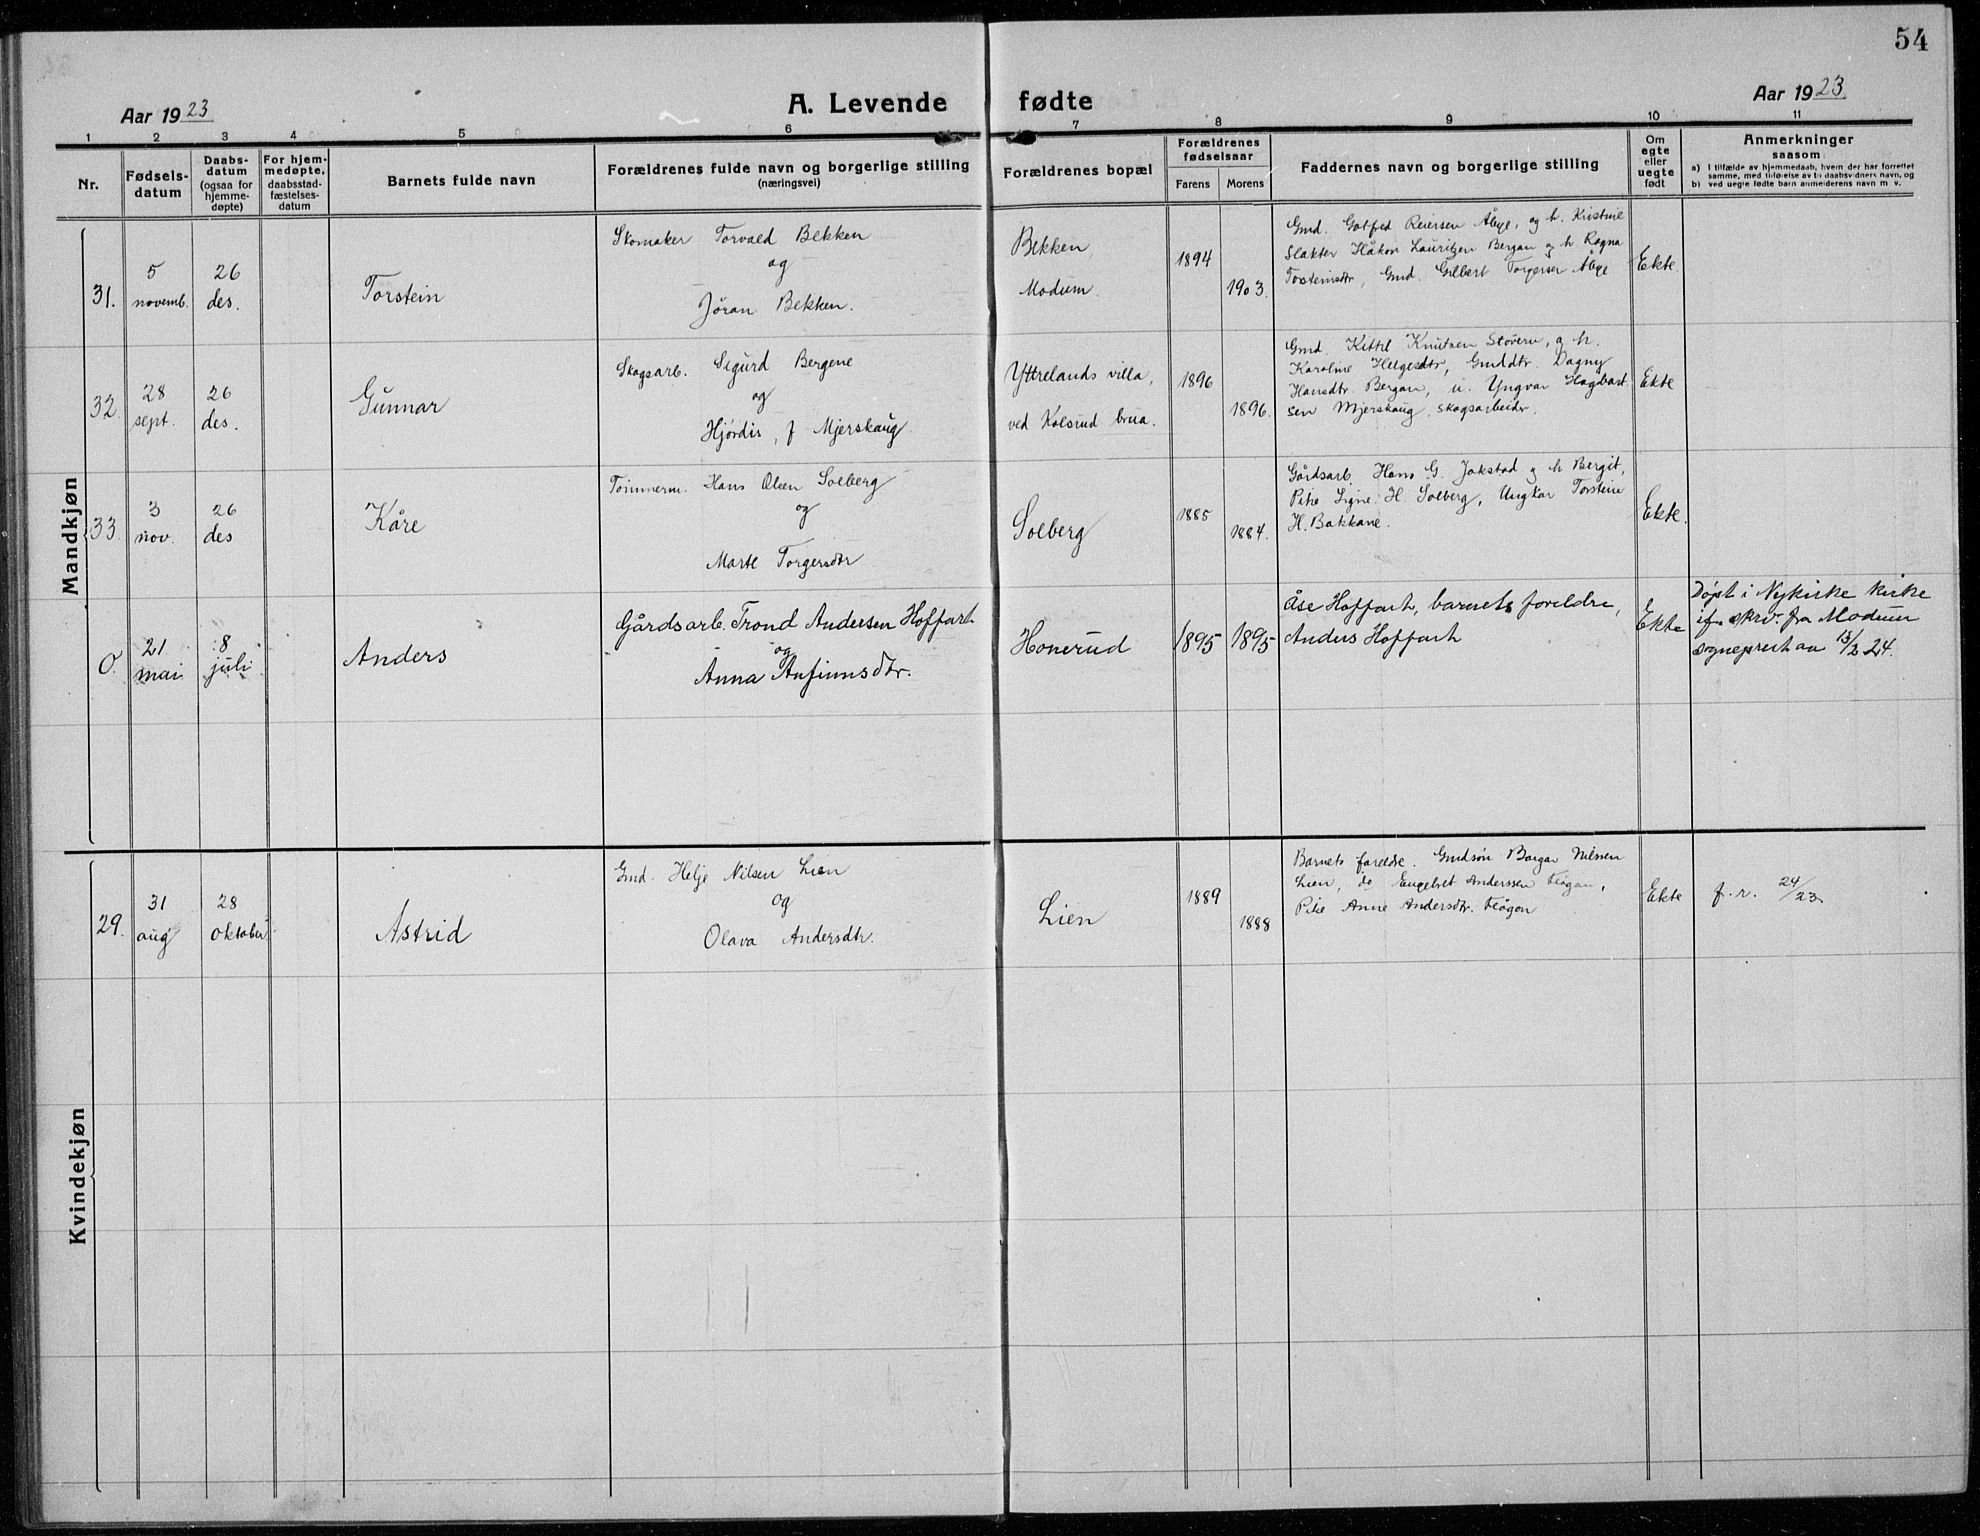 54
Aar 1923
A. Levende fødte
Aar 1923
1 2 3 4 5 6 7 8 9 10 11
Nr.
Fødsels-
datum
Daabs-
datum
(ogsaa for
hjemme-
døpte)
For hjem-
medøpte,
daabsstad-
fæstelses-
datum
Barnets fulde navn
Forældrenes fulde navn og borgerlige stilling
(næringsvei)
Forældrenes bopæl
Forældrenes
fødselsaar
Farens Morens
Faddernes navn og borgerlige stilling
Om
egte
eller
uegte
født
Anmerkninger
saasom:
a) I tilfælde av hjemmedaab, hvem der har forrettet
samme, med tilføielse av to daabsvidners navn, og
b) ved uegte fødte barn anmelderens navn m. v.
Mandkjøn
31.
5
novemb.
26
des.
Torstein
Skomaker Torvald Bekken
og
Jøran Bekken.
Bekken
Modum.
1894
1903.
Gmd. Gotfred Reiersen Åbye, og h. Kristine
Slakter Håkon Lauritzen Bergan og h Ragna
Torsteinsdtr, Gmd. Gilbert Torgersen Åbye
Ekte.
32.
28
sept.
26
des.
Gunnar
Skogsarb. Sigurd Bergene
og
Hjørdis, f Mjerskaug
Yttrelands villa,
ved Kolsrud brua.
1896
1896.
Gmd. Kittil Knutsen Støveru, og h.
Karoline Helgesdtr, Gmddtr. Dagny
Hansdtr. Bergan, u. Yngvar Hagbart
sen Mjerskaug, skogsarbeider.
Ekte
33.
3
nov.
26
des
Kåre
Tømmerm. Hans Olsen Solberg
og
Marte Torgersdtr
Solberg
1885
1884.
Gårdsarb. Hans G. Jokstad og h Bergit,
Pike Signe H. Solberg, Ungkar Torstein
H. Bakkane.
Ekte.
0.
21
mai
8
juli
Anders
Gårdsarb. Trond Andersen Hoffart
og
Anna Anfinnsdtr.
Honerud
1895 1895
Åse Hoffart, barnets foreldre,
Anders Hoffart
Ekte
Døpt i Nykirke kirke
if. skrv. fra Modum
sogneprest av 13/2 24.
Kvindekjøn
29.
31
aug
28
oktober
Astrid
Gmd. Helje Nilsen Lien
og
Olava Andersdtr.
Lien
1889
1888
Barnets foreldre. Gmdsøn Borgar Nilssen
Lien, do Engebret Anderssen Flågan,
Pike Anne Andersdtr. Flågan
Ekte
f. r. 24/23